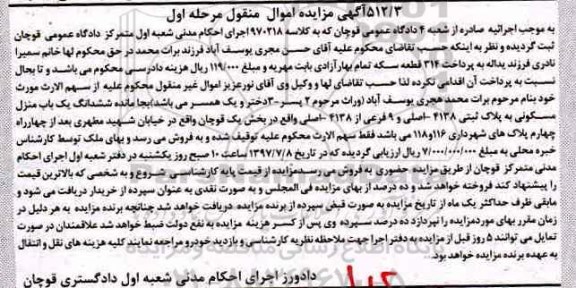 ۵۱۲/۳آگهی مزایده اموال منقول مرحله اول
به موجب اجرائیه صادره از شعبه ۴ دادگاه عمومی قوچان که به کلاسه ۹۷۰۲۱۸ اجرای احکام مدنی شعبه اول متمرکز دادگاه عمومی قوچان
ثبت گردیده و نظر به اینکه حسب تقاضای محکوم علیه آقای حسن مجری یوسف آباد فرزند برات محمد در حق محکوم لها خانم سمیرا
نادری فرزند یداله به پرداخت ۳۱۴ قطعه سکه تمام بهارآزادی بابت مهریه و مبلغ ۱۱۹/۰۰۰ ریال هزینه دادرسی محکوم می باشد و تا بحال
نسبت به پرداخت آن اقدامی نکرده لذا حسب تقاضای لها و وکیل وی آقای نورعزیز اموال غیر منقول محکوم علیه از سهم الارث مورث
خود بنام مرحوم برات محمد هجری یوسف آباد (وراث مرحوم ۲ پسر-۳دختر و یک همسر می باشد)بجا مانده ششدانگ یک باب منزل
مسکونی به پلاک ثبتی ۴۱۳۸ -اصلی و ۹ فرعی از ۴۱۳۸ -اصلی واقع در بخش یک قوچان واقع در خیابان شهید مطهری بعد از چهارراه
چهارم پلاک های شهرداری ۱۱۶و۱۱۸ می باشد فقط سهم الارث محکوم علیه توقیف شده و به فروش می رسد و بهای ملک توسط کارشناس
خبره محلی به مبلغ ۷/۰۰۰/۰۰۰/۰۰۰ ریال ارزیابی گردیده که در تاریخ ۱۳۹۷/۷/۸ ساعت ۱۰ صبح روز یکشنبه در دفتر شعبه اول اجرای احکام
مدنی متمرکز قوچان از طریق مزایده حضوری به فروش می رسد مزایده از قیمت پایه کارشناسی شروع و به شخصی که بالاترین قیمت
را پیشنهاد کند فروخته خواهد شد و ده درصد از بهای مزایده فی المجلس و به صورت نقدی به عنوان سپرده از خریدار دریافت می شود و
مابقی ظرف حداکثر یک ماه از تاریخ مزایده به صورت قبض سپرده از برنده مزایده دریافت خواهد شد چنانچه برنده مزایده به هر دلیل در
زمان مقرر بهای موردمزایده را نپردازد ده درصد سپرده وی پس از کسر هزینه مزایده به نفع دولت ضبط خواهد شد علاقمندان در صورت
تمایل می توانند ۵ روز قبل از مزایده به دفتر اجرا جهت ملاحظه نظریه کارشناسی و بازدید خودرو مراجعه نمایند کلیه هزینه های نقل و انتقال
به عهده برنده مزایده خواهد بود.
دادورز اجرای احکام مدنی شعبه اول دادگستری قوچان